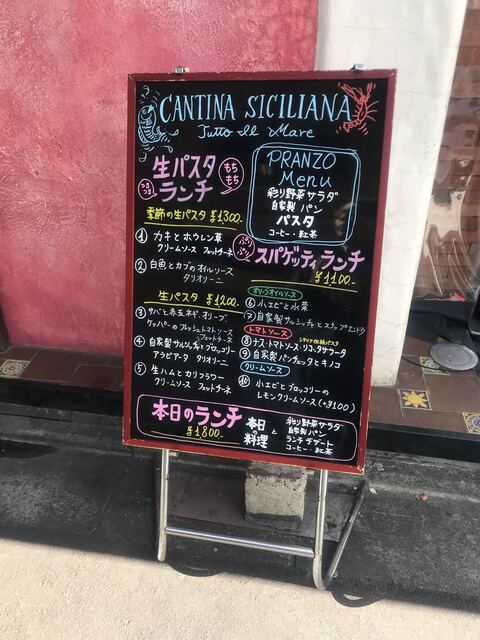 CANTINA SICILIANA
Tutto il Mare
生パスタ
ランチ
もちもち
つるつる
季節の生パスタ ¥1,300-
① カキとホウレン草
クリームソース フェットチーネ
② 白魚とカブのオイルソース
タリオリーニ
生パスタ ¥1,200-
③ サバと赤玉ネギ、オリーブ
ケッパーのフレッシュトマトソース
フェットチーネ
④ 自家製サルシッチャとブロッコリー
アラビアータ タリオリーニ
⑤ 生ハムとカリフラワー
クリームソース フェットチーネ
PRANZO
Menu
彩り野菜サラダ
自家製パン
パスタ
コーヒー・紅茶
ぷりぷり
スパゲッティランチ
¥1,100-
オリーブオイルソース
⑥ 小エビと水菜
⑦ 自家製サルシッチャとスナップエンドウ
トマトソース
シチリア伝統パスタ
⑧ ナス・トマトソース・リコッタサラータ
⑨ 自家製パンチェッタとキノコ
クリームソース
⑩ 小エビとブロッコリーの
レモンクリームソース(+¥100)
本日のランチ
¥1,800-
本日の料理
と
彩り野菜サラダ
自家製パン
ランチデザート
コーヒー・紅茶